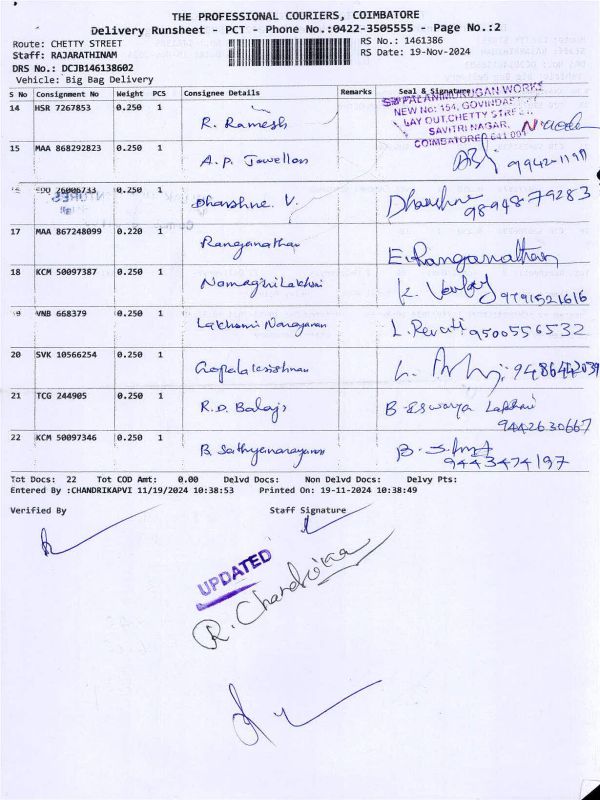 THE PROFESSIONAL COURIERS, COIMBATORE
Delivery Runsheet - PCT - Phone No.:0422-3505555 - Page No.:2
Route: CHETTY STREET RS No.: 1461386
Staff: RAJARATHINAM RS Date: 19-Nov-2024
DRS No.: DCJB146138602
Vehicle: Big Bag Delivery
S No Consignment No Weight PCS Consignee Details Remarks Seal & Signature
14 HSR 7267853 0.250 1 R. Ramesh
NEW No: 154, GOVINDAS
LAY OUT, CHETTY STREET,
SAVITRI NAGAR,
COIMBATORE 641 001
15 MAA 868292823 0.250 1 A.P. Jowellors
16 EDO 26006733 0.250 1 Dharshne. V. Dharshne 98948-79283
17 MAA 867248099 0.220 1 Ranganathan E. Ranganathan
18 KCM 50097387 0.250 1 Namagiri Lakshmi K. 9791521616
19 VNB 668379 0.250 1 Lakshmi Narayanan L. Revati 9500556532
20 SVK 10566254 0.250 1 Gopalakrishnan
21 TCG 244905 0.250 1 R.D. Balaji B Eswarya Lakshmi
9442630667
22 KCM 50097346 0.250 1 B. Sathyanarayanan
9443474197
Tot Docs: 22 Tot COD Amt: 0.00 Delvd Docs: Non Delvd Docs: Delvy Pts:
Entered By :CHANDRIKAPVI 11/19/2024 10:38:53 Printed On: 19-11-2024 10:38:49
Verified By Staff Signature
UPDATED
R. Chandrika